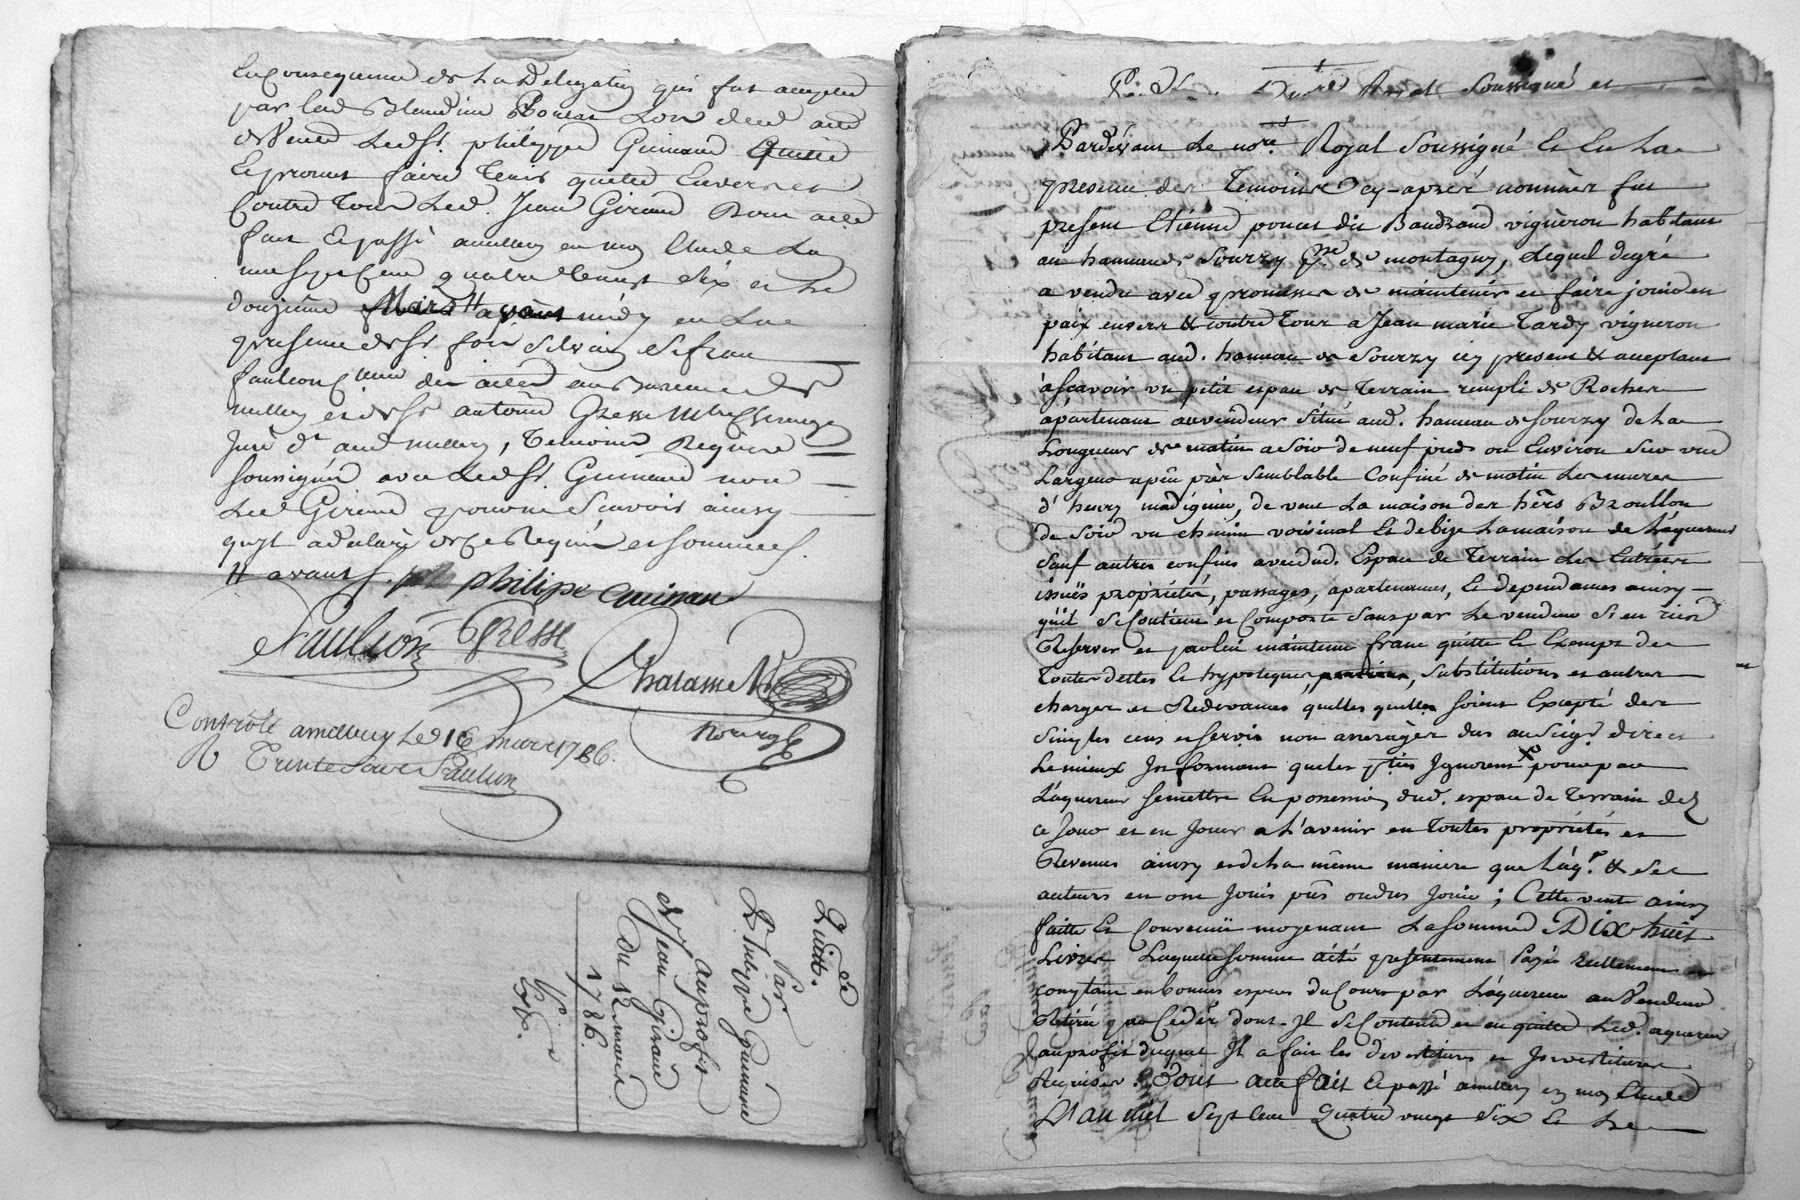 En Consequence de La Delegation qui fut acceptée
par led Blandine Poncet Lors dud acte
de Vente Ledit Sr. philippe Guinand
Et promet faire tenir quitte Envers et
Contre Tous Led. Jean Giraud Dont acte
fait Et passé a millery en mon Etude La
mil sept Cent quatre vingt Six et Le
douzieme Mars # avant midy en La
presence de Sr.
Commis des actes au Bureau de
millery et de Sr antoine Gresse
Juré dt aud millery, Temoins Requis
soussignés avec Ledit Sr. Guinand non
Led Giraud pour ne Scavoir ainsy
qu'il a declaré de ce Requis et sommé.
# avant philippe Guinan
Faulcon Gresse
Chatasse
Controlé a millery Le 16 mars 1786.
R Trente Faulcon
Quittce.
Par
Philippe Guinand
au profit
de Jean Giraud
du 12 mars
1786.
Par devant Le nore. Royal Soussigné et
Pardevant Le nore. Royal Soussigné Et En La
presence des Temoins cy-apres nommés fut
present Etienne poncet dit Baudrand vigneron habitant
au hameau de Sourzy psse de montagny, Lequel de gré
a vendu avec promesse de maintenir et faire jouir en
paix envers & contre Tous a Jean marie Tardy vigneron
habitant aud. hameau de Sourzy icy present & acceptant
àscavoir un petit espace de Terrain rempli de Rocher
apartenant au vendeur Situé aud. hameau de Sourzy de La
Longueur de matin a Soir de neuf pieds ou Environ Sur une
Largeur apeu près Semblable Confiné de matin Les murs
d'henry madignier, de vent La maison des hers Broullon
de Soir un chemin voisinal Et de bize La maison de L'aquereur
Sauf autres confins avec dud. Espace de Terrain Les Entrées
issuës proprietés, passages, apartenances, Et dependances ainsy
qu'il Se Contient et Comporte Sans par Le vendeur S'en rien
Reserver et pardevant maintenu franc quitte Et Exempt de
toutes dettes Et hypoteques, Substitutions et autres
charges et Redevances quelles quelles soient Excepté des
Simples cens et servis non arreragés dus au Seigr direct
Le mieux Informant que les pties Ignorent x pour par
L'aquereur Se mettre En possession dud. espace de Terrain dez
ce jour et en Jouir a L'avenir en toutes proprietés et
Revenus ainsy et de La même maniere que L'aqr. & Ses
auteurs en ont Jouis pûs ou dus Jouir ; Cette vente ainsy
faitte Et Convenüe moyenant La Somme de Dix huit
Livres Laquelle Somme a été presentement Payée réellement et
comptant en bonnes especes du Cours par L'aquereur au Vendeur
Retirée par Ce der dont. Il Se Contente et en quitte Led. aquereur
au profit duquel Il a fait les devestitures et Investitures
Requises. Dont acte fait Et passé a millery en mon Etude
L'an mil Sept Cent Quatre vingt Six Et Le